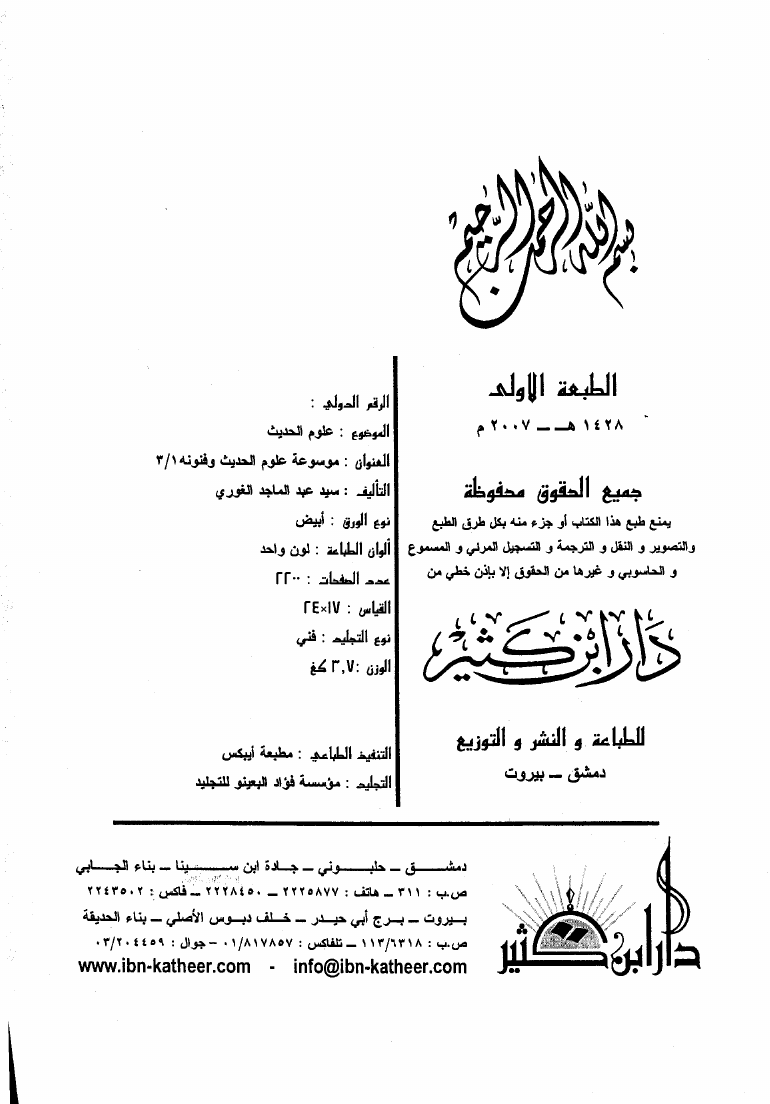 بسم الله الرحمن الرحيم
الطبعة الأولى
١٤٢٨ هـ ــ ٢٠٠٧ م
جميع الحقوق محفوظة
يمنع طبع هذا الكتاب أو جزء منه بكل طرق الطبع
والتصوير و النقل و الترجمة و التسجيل المرئي و المسموع
و الحاسوبي و غيرها من الحقوق إلا بإذن خطي من
دار ابن كثير
للطباعة و النشر و التوزيع
دمشق ــ بيروت
الرقم الدولي :
الموضوع : علوم الحديث
العنوان : موسوعة علوم الحديث وفنونه ٣/١
التأليف : سيد عبد الماجد الغوري
نوع الورق : أبيض
ألوان الطباعة : لون واحد
عدد الصفحات : ٢٢٠٠
القياس : ١٧×٢٤
نوع التجليد : فني
الوزن : ٣,٧ كغ
التنفيذ الطباعي : مطبعة أيبكس
التجليد : مؤسسة فؤاد البعينو للتجليد
دمشق ــ حلبوني ــ جادة ابن سينا ــ بناء الجابي
ص.ب : ٣١١ ــ هاتف : ٢٢٢٥٨٧٧ ــ ٢٢٢٨٤٥٠ ــ فاكس : ٢٢٤٣٥٠٢
بيروت ــ برج أبي حيدر ــ خلف دبوس الأصلي ــ بناء الحديقة
ص.ب : ١١٣/٦٣١٨ ــ تلفاكس : ٠١/٨١٧٨٥٧ - جوال : ٠٣/٢٠٤٤٥٩
www.ibn-katheer.com - info@ibn-katheer.com
دار ابن كثير